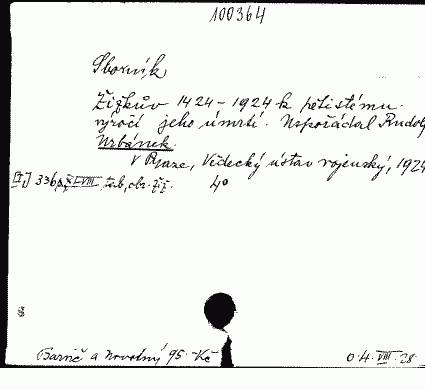 100364
Sborník
Žižkův 1424-1924 k pětistému
výročí jeho úmrtí. Uspořádal Rudolf
Urbánek.
V Praze, Vědecký ústav vojenský, 1924
336 XLVIII tab, obr. 4°
Barvič a Novotný 95 Kč
VIII 28